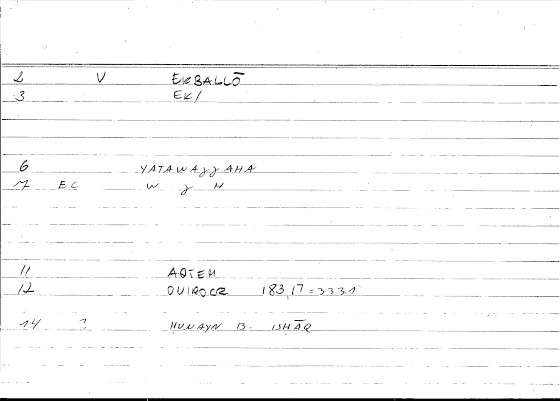 2 V EKBALLŌ
3 EK/
6 YATAWAJJAHA
7 EC W J H
11 AQTEH
12 OUIROCR 183,17 = 3331
14 ? HUNAYN B. ISHĀQ